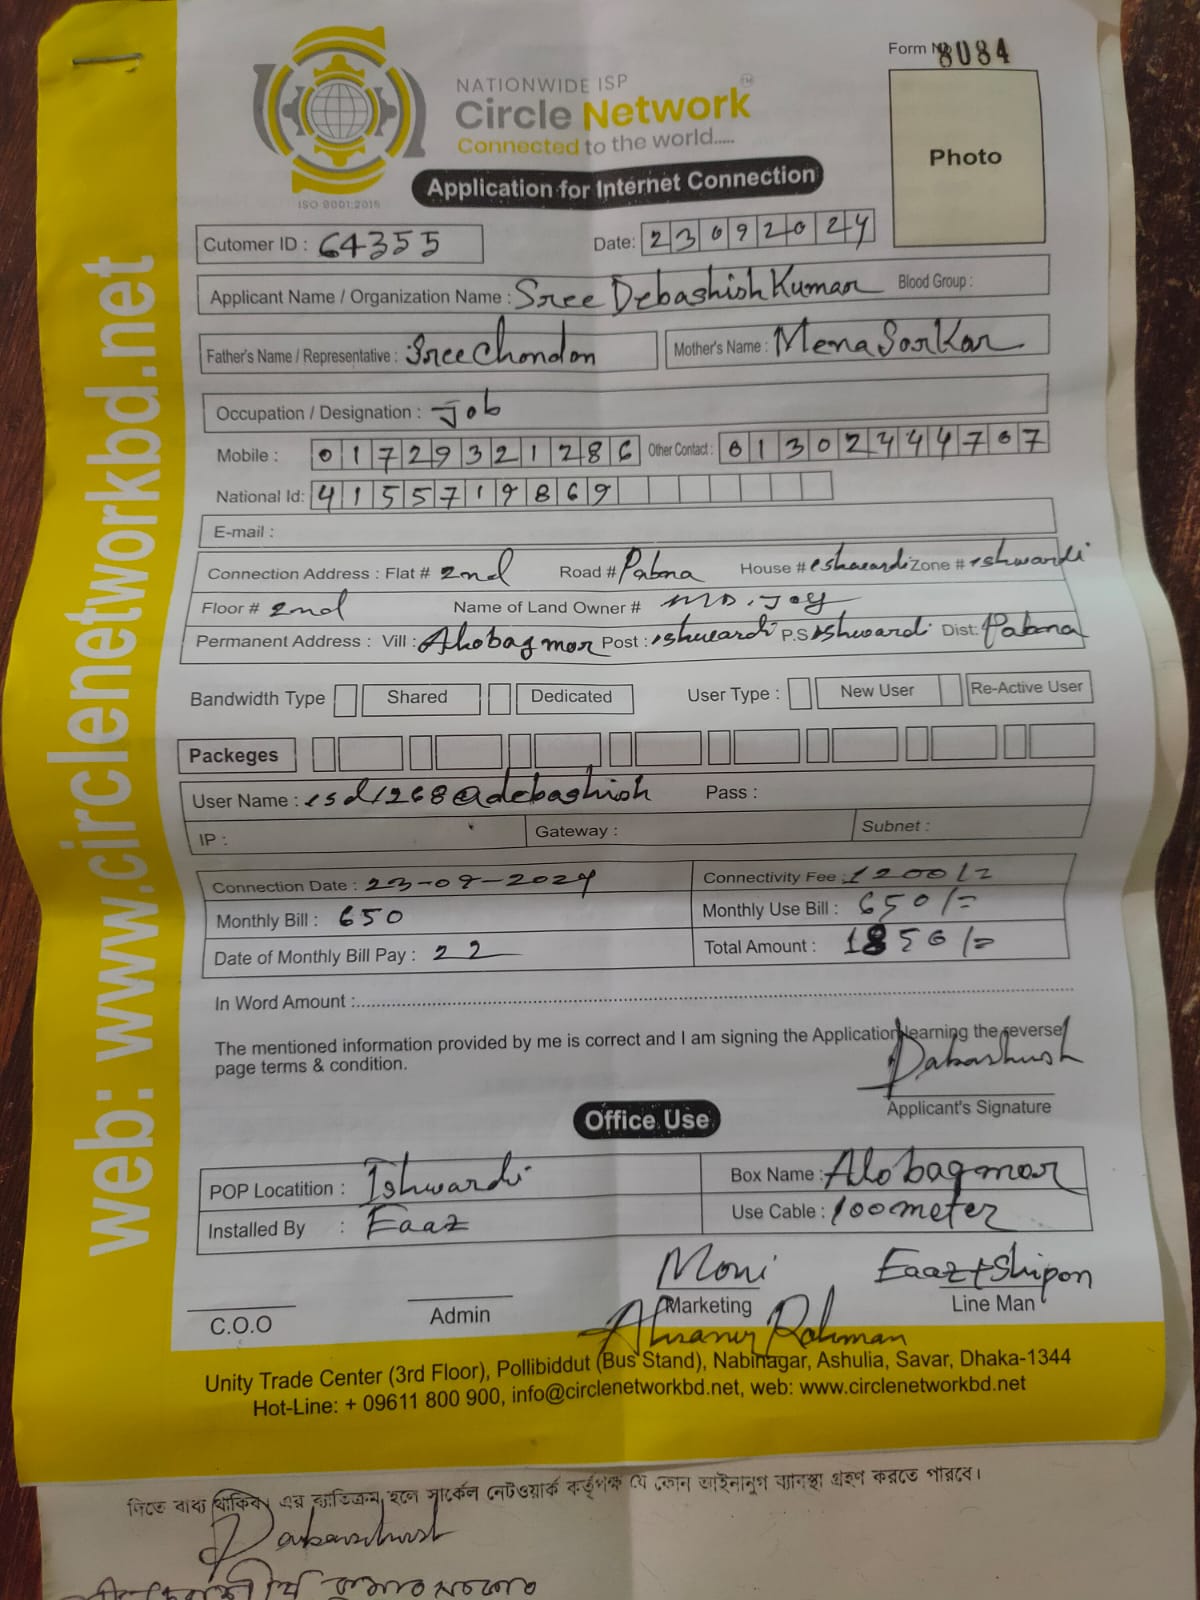 Form No 8084
NATIONWIDE ISP
Circle Network
Connected to the world.....
ISO 9001:2015
Photo
Application for Internet Connection
Cutomer ID : 64355
Date: 23092024
Applicant Name / Organization Name : Sree Debashish Kumar Blood Group :
Father's Name / Representative : Sree Chondon Mother's Name : Mena Sarkar
Occupation / Designation : Job
Mobile : 01729321286 Other Contact : 01302444707
National Id: 4155719869
E-mail :
Connection Address : Flat # 2nd Road # Pabna House # eshwardi Zone # eshwardi
Floor # 2nd Name of Land Owner # MD. Joy
Permanent Address : Vill : Alobagmor Post : eshwardi P.S eshwardi Dist: Pabna
Bandwidth Type Shared Dedicated User Type : New User Re-Active User
Packeges
User Name : esd1268@debashish Pass :
IP : Gateway : Subnet :
Connection Date : 23-09-2024 Connectivity Fee : 1200/=
Monthly Bill : 650 Monthly Use Bill : 650/=
Date of Monthly Bill Pay : 22 Total Amount : 1850/=
In Word Amount :
The mentioned information provided by me is correct and I am signing the Application learning the reverse
page terms & condition.
Dabashish
Applicant's Signature
Office Use
POP Locatition : Ishwardi Box Name : Alobagmor
Installed By : Eaaz Use Cable : 100 meter
Moni Eaaz + Shipon
C.O.O Admin Marketing Line Man
Rahman
Unity Trade Center (3rd Floor), Pollibiddut (Bus Stand), Nabinagar, Ashulia, Savar, Dhaka-1344
Hot-Line: + 09611 800 900, info@circlenetworkbd.net, web: www.circlenetworkbd.net
web: www.circlenetworkbd.net
দিতে বাধ্য থাকিব। এর ব্যতিক্রম হলে সার্কেল নেটওয়ার্ক কর্তৃপক্ষ যে কোন আইনানুগ ব্যবস্থা গ্রহণ করতে পারবে।
Dabashish
কুমার সরকার